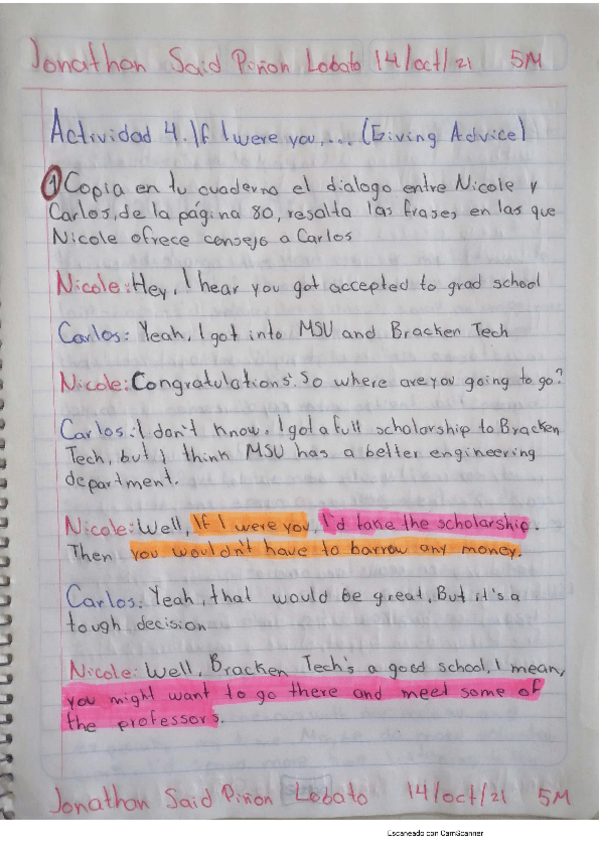 Jonathan Said Piñon Lobato 14/oct/21 5M
Actividad 4. If I were you,... (Giving Advice)
1 Copia en tu cuaderno el dialogo entre Nicole y
Carlos, de la página 80, resalta las frases en las que
Nicole ofrece consejo a Carlos
Nicole: Hey, I hear you got accepted to grad school
Carlos: Yeah, I got into MSU and Bracken Tech
Nicole: Congratulations. So where are you going to go?
Carlos: I don't know. I got a full scholarship to Bracken
Tech, but I think MSU has a better engineering
department.
Nicole: Well, If I were you, I'd take the scholarship.
Then you wouldn't have to barrow any money.
Carlos: Yeah, that would be great, But it's a
tough decision
Nicole: Well, Bracken Tech's a good school, I mean,
you might want to go there and meet some of
the professors.
Jonathan Said Piñon Lobato 14/oct/21 5M
Escaneado con CamScanner